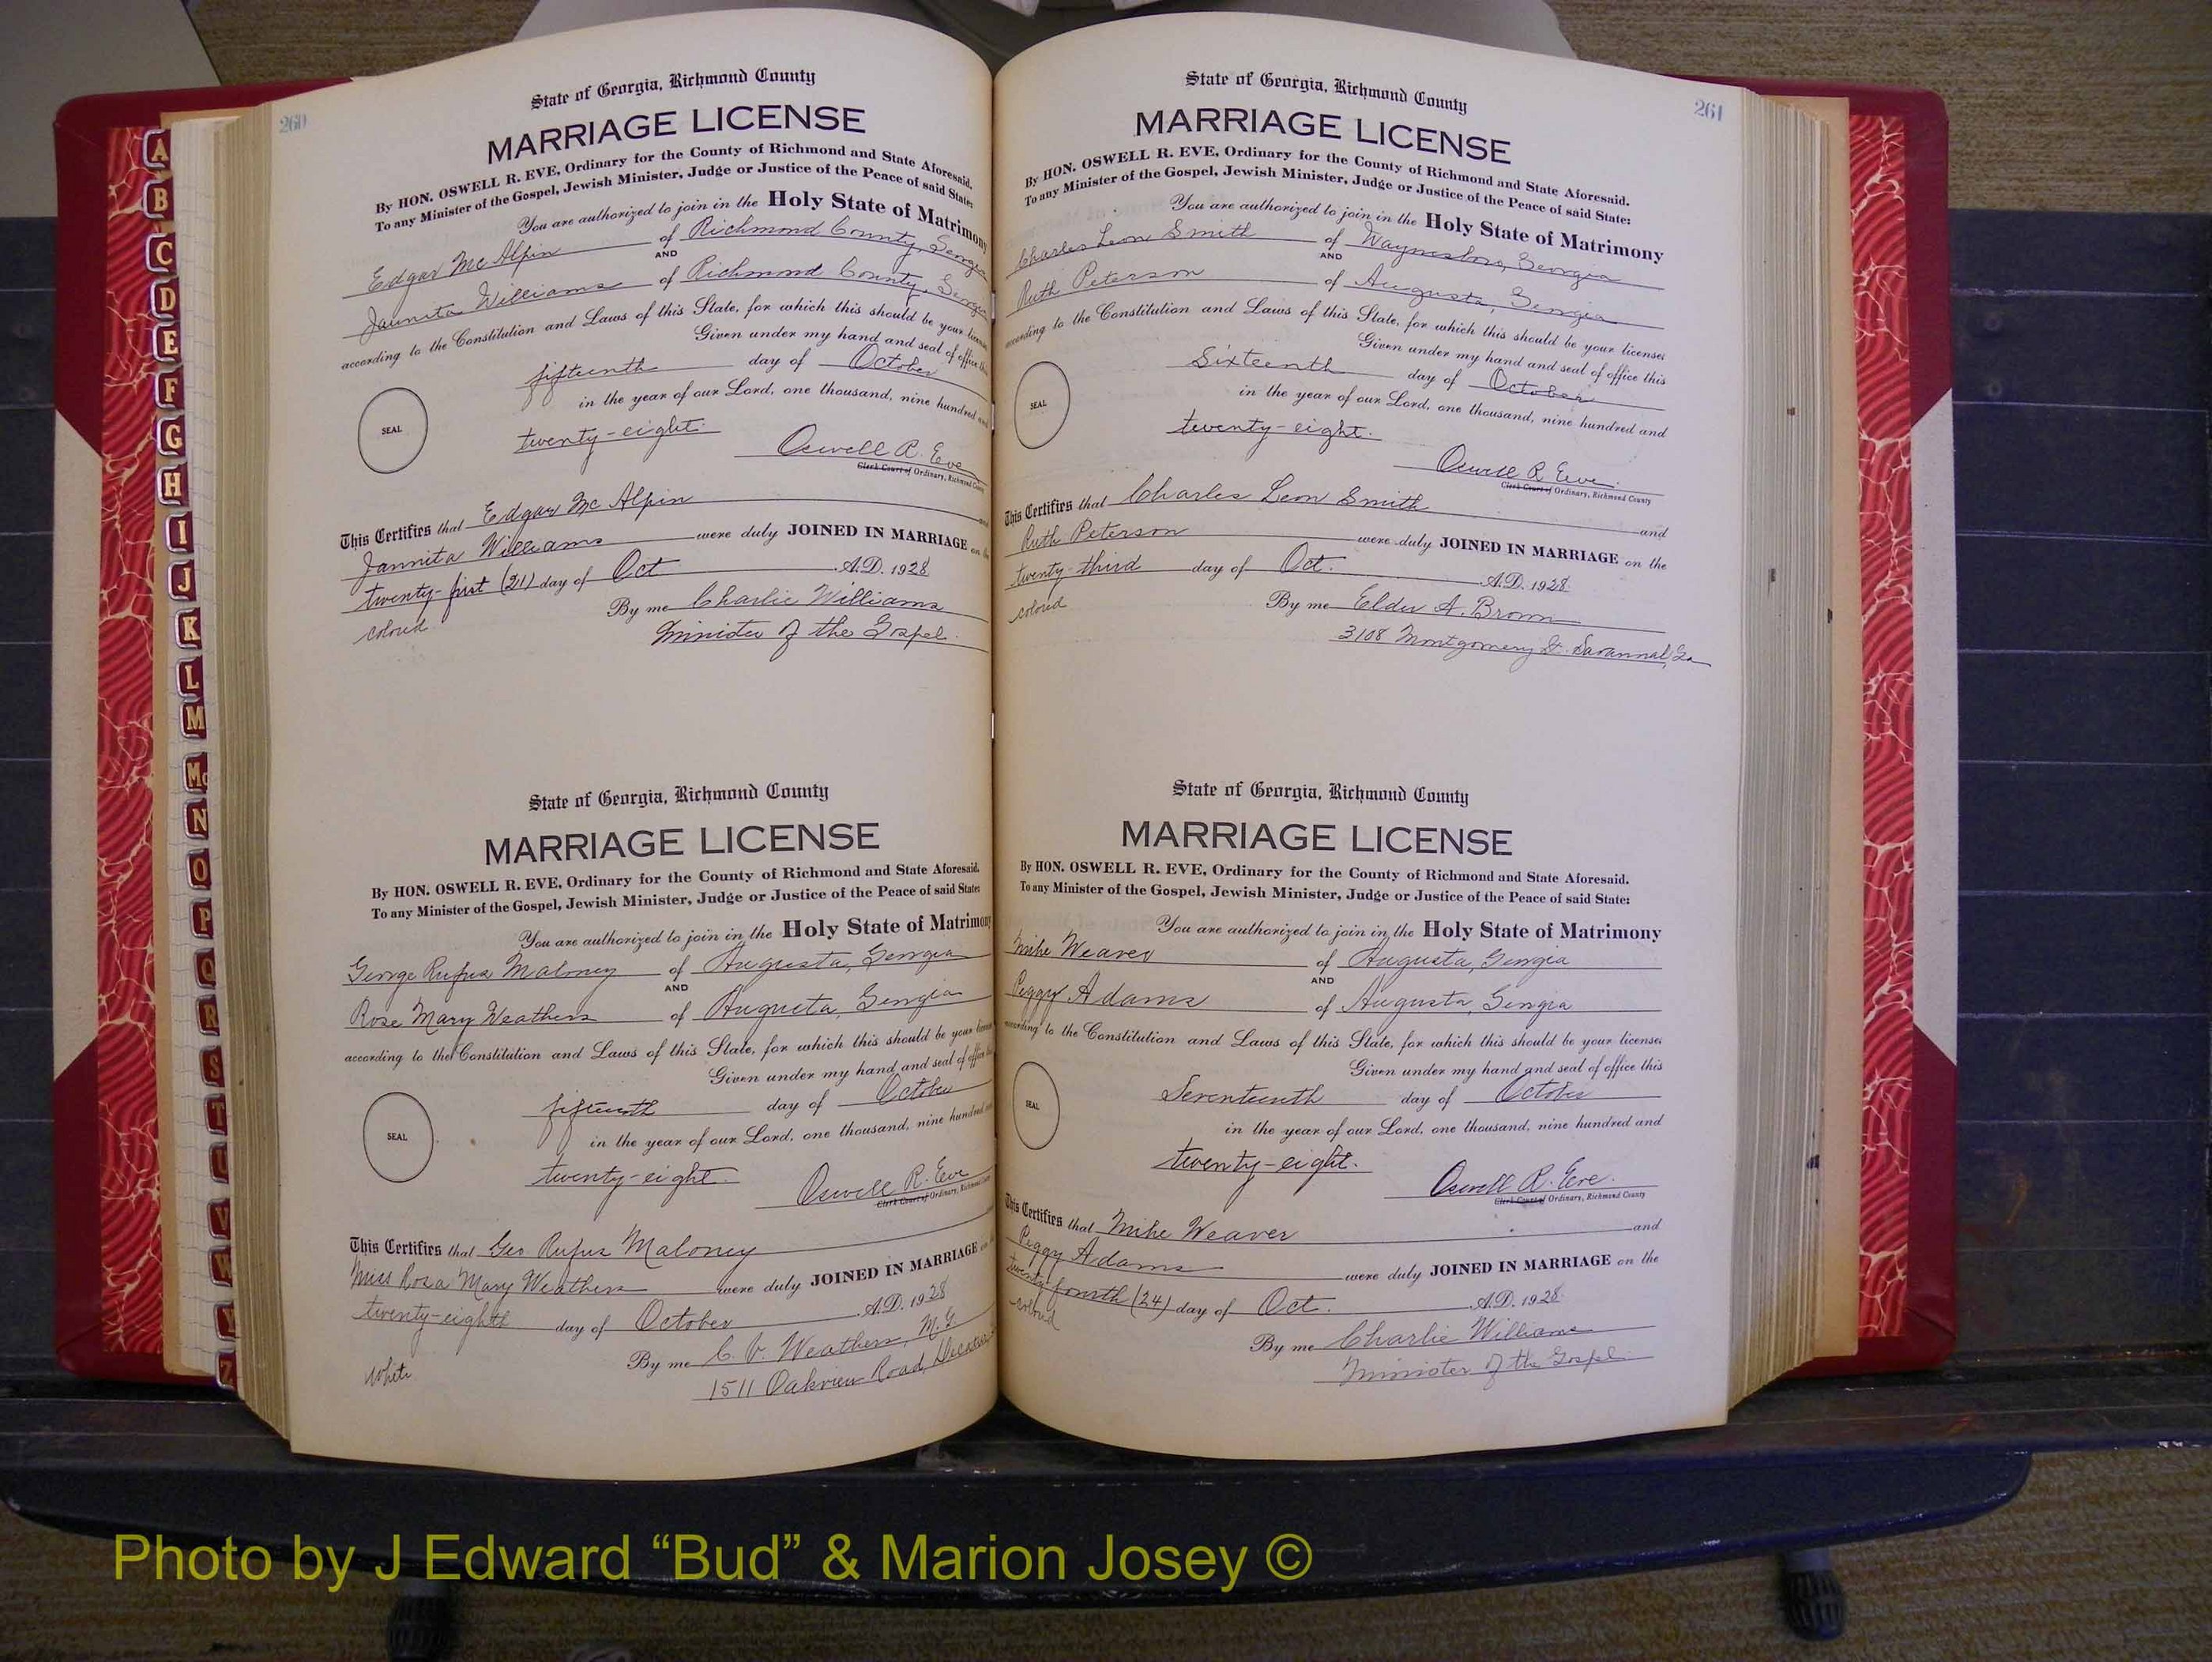 260
State of Georgia, Richmond County
MARRIAGE LICENSE
By HON. OSWELL R. EVE, Ordinary for the County of Richmond and State Aforesaid.
To any Minister of the Gospel, Jewish Minister, Judge or Justice of the Peace of said State:
You are authorized to join in the Holy State of Matrimony
Edgar Mc Alpin of Richmond County, Georgia
AND
Jaunita Williams of Richmond County, Georgia
according to the Constitution and Laws of this State, for which this should be your license
Given under my hand and seal of office this
fifteenth day of October
in the year of our Lord, one thousand, nine hundred and
SEAL
twenty-eight.
Oswell R. Eve
Clerk Court of Ordinary, Richmond County
This Certifies that Edgar Mc Alpin and
Jaunita Williams were duly JOINED IN MARRIAGE on the
twenty-first (21) day of Oct A.D. 1928
By me Charlie Williams
colored
Minister of the Gospel.
State of Georgia, Richmond County
MARRIAGE LICENSE
By HON. OSWELL R. EVE, Ordinary for the County of Richmond and State Aforesaid.
To any Minister of the Gospel, Jewish Minister, Judge or Justice of the Peace of said State:
You are authorized to join in the Holy State of Matrimony
George Rufus Maloney of Augusta, Georgia
AND
Rose Mary Weathers of Augusta, Georgia
according to the Constitution and Laws of this State, for which this should be your license
Given under my hand and seal of office this
fifteenth day of October
SEAL
in the year of our Lord, one thousand, nine hundred
twenty-eight.
Oswell R. Eve
Clerk Court of Ordinary, Richmond County
This Certifies that Geo Rufus Maloney
Miss Rosa Mary Weathers were duly JOINED IN MARRIAGE
twenty-eighth day of October A.D. 1928
By me C. V. Weathers, M. G.
White
1511 Oakview Road,
261
State of Georgia, Richmond County
MARRIAGE LICENSE
By HON. OSWELL R. EVE, Ordinary for the County of Richmond and State Aforesaid.
To any Minister of the Gospel, Jewish Minister, Judge or Justice of the Peace of said State:
You are authorized to join in the Holy State of Matrimony
Charles Leon Smith of Waynesboro, Georgia
AND
Ruth Peterson of Augusta, Georgia
according to the Constitution and Laws of this State, for which this should be your license
Given under my hand and seal of office this
Sixteenth day of October
SEAL
in the year of our Lord, one thousand, nine hundred and
twenty-eight.
Oswell R Eve.
Clerk Court of Ordinary, Richmond County
This Certifies that Charles Leon Smith and
Ruth Peterson were duly JOINED IN MARRIAGE on the
twenty-third day of Oct. A.D. 1928
colored
By me Elder A. Brown
3108 Montgomery St. Savannah, Ga
State of Georgia, Richmond County
MARRIAGE LICENSE
By HON. OSWELL R. EVE, Ordinary for the County of Richmond and State Aforesaid.
To any Minister of the Gospel, Jewish Minister, Judge or Justice of the Peace of said State:
You are authorized to join in the Holy State of Matrimony
Mike Weaver of Augusta, Georgia
AND
Peggy Adams of Augusta, Georgia
according to the Constitution and Laws of this State, for which this should be your license
Given under my hand and seal of office this
Seventeenth day of October
SEAL
in the year of our Lord, one thousand, nine hundred and
twenty-eight.
Oswell R. Eve.
Clerk Court of Ordinary, Richmond County
This Certifies that Mike Weaver and
Peggy Adams were duly JOINED IN MARRIAGE on the
twenty-fourth (24) day of Oct. A.D. 1928
colored
By me Charlie Williams
Minister of the Gospel.
A
B
C
D
E
F
G
H
I
J
K
L
M
Mc
N
O
P
Q
R
S
T
U
V
W
Y
Z
Photo by J Edward “Bud” & Marion Josey ©